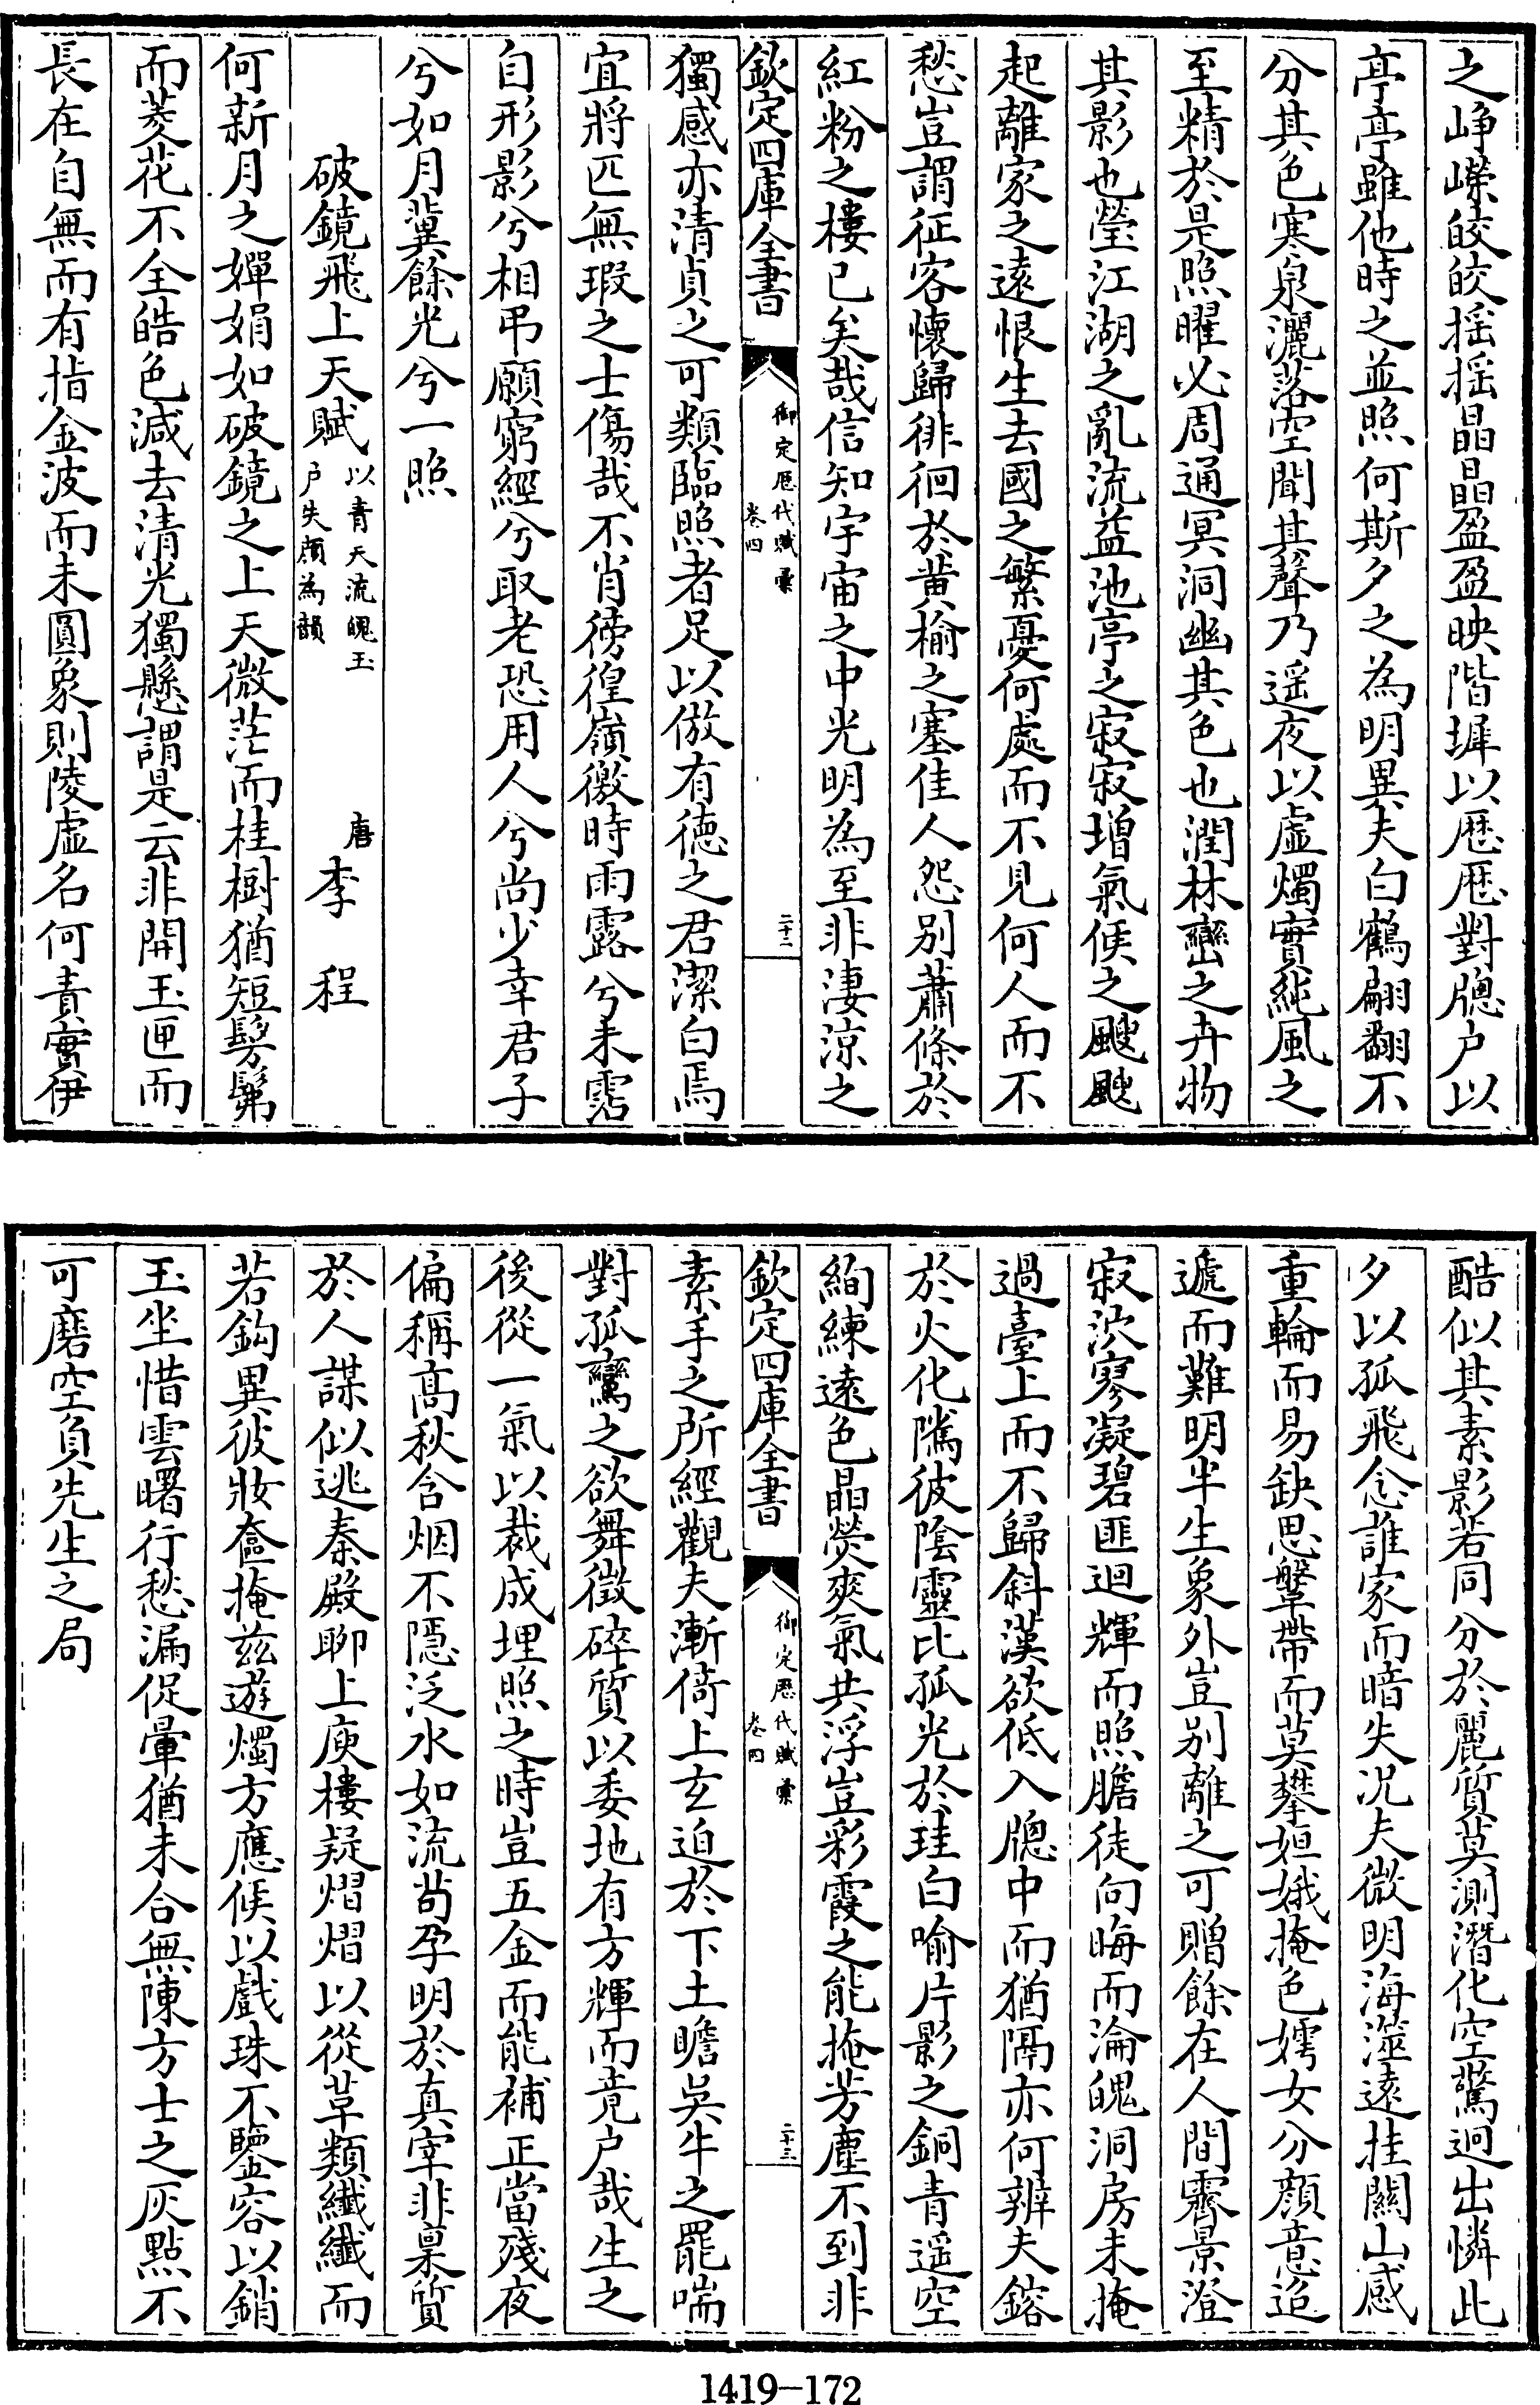 之崢嶸皎皎搖搖晶晶盈盈映階墀以歴歴對牕户以
亭亭雖他時之並照何斯夕之為明異夫白鶴翩翻不
分其色寒泉灑落空聞其聲乃遥夜以虛燭實純風之
至精於是照曜必周通冥洞幽其色也潤林巒之卉物
其影也瑩江湖之亂流益池亭之寂寂增氣候之颼颼
起離家之遠恨生去國之繁憂何處而不見何人而不
愁豈謂征客懷歸徘徊於黄榆之塞佳人怨别蕭條於
紅粉之樓已矣哉信知宇宙之中光明為至非淒涼之
欽定四庫全書
御定歴代賦彚
卷四
二十二
獨感亦清貞之可類臨照者足以倣有徳之君潔白焉
宜將匹無瑕之士傷哉不肖徬徨嶺徼時雨露兮未霑
自形影兮相弔願窮經兮取老恐用人兮尚少幸君子
兮如月冀餘光兮一照
破鏡飛上天賦
以青天流魄玉
户失顔為韻
唐李程
何新月之嬋娟如破鏡之上天微茫而桂樹猶短髣髴
而菱花不全皓色減去清光獨懸謂是云非開玉匣而
長在自無而有指金波而未圓象則陵虛名何責實伊
酷似其素影若同分於麗質莫測潛化空驚迥出憐此
夕以孤飛念誰家而暗失况夫微明海澨遠挂關山感
重輪而易缺思鞶帶而莫攀姮娥掩色婺女分顔意迢
遞而難明半生象外豈别離之可贈餘在人間霽景澄
寂泬寥凝碧匪迴輝而照膽徒向晦而淪魄洞房未掩
過臺上而不歸斜漢欲低入牕中而猶隔亦何辨夫鎔
於火化隲彼陰靈比孤光於珪白喻片影之銅青遥空
絢練遠色晶熒爽氣共浮豈彩霞之能掩芳塵不到非
欽定四庫全書
御定歴代賦彚
卷四
二十三
素手之所經觀夫漸倚上玄迫於下土瞻吳牛之罷喘
對孤鸞之欲舞徴碎質以委地有方輝而竟户哉生之
後從一氣以裁成埋照之時豈五金而能補正當殘夜
偏稱髙秋含烟不隱泛水如流茍孕明於真宰非稟質
於人謀似逃秦殿聊上庾樓疑熠熠以從革類纖纖而
若鈎異彼妝奩掩兹遊燭方應候以戲珠不鑒容以銷
玉坐惜雲曙行愁漏促暈猶未合無陳方士之灰點不
可磨空負先生之局
1419-172